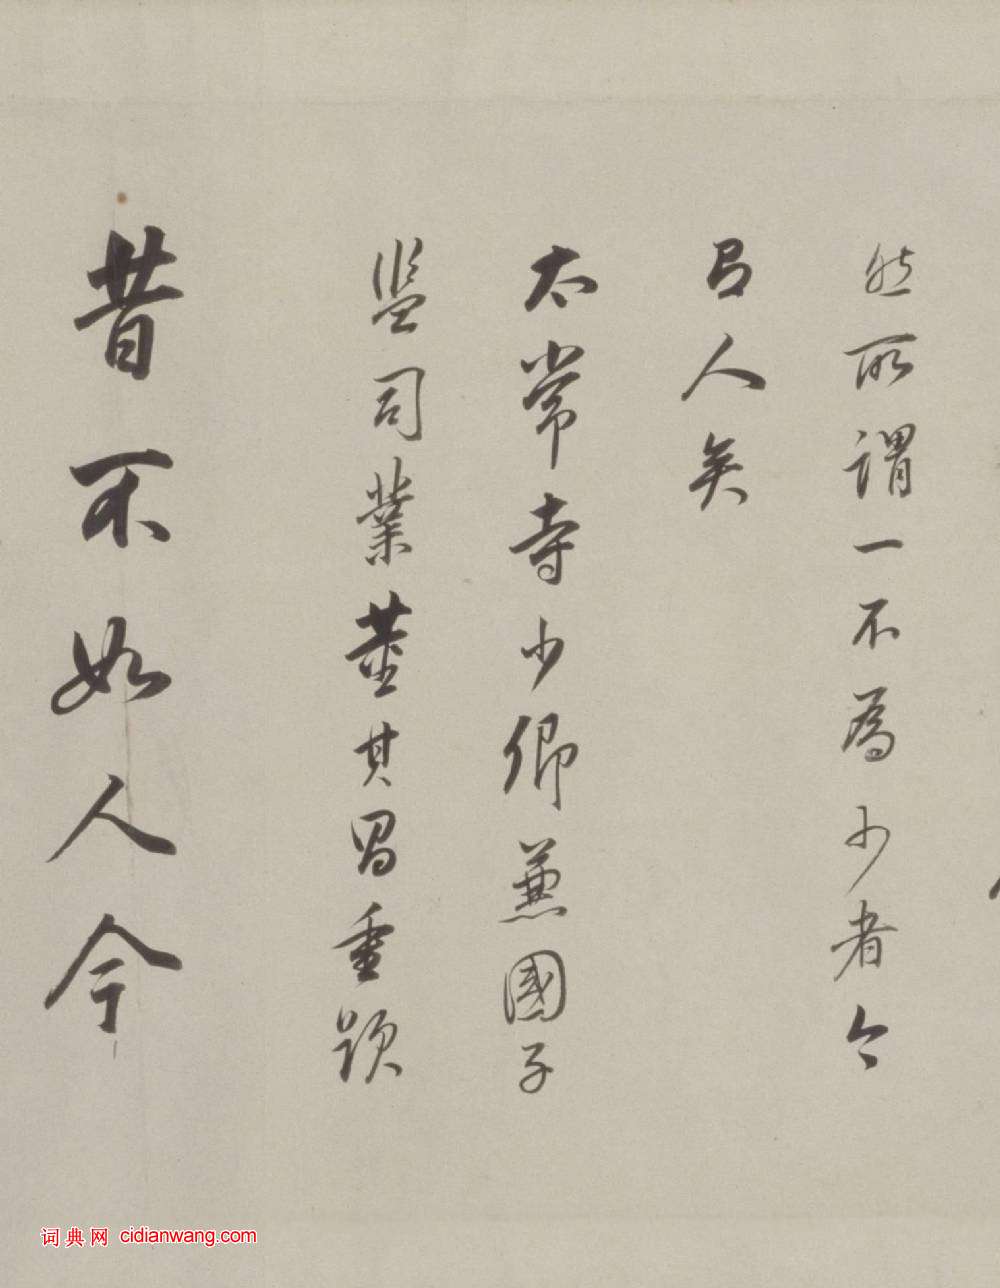 然所謂一不為少者今
已人矣
太常寺少卿兼國子
監司業董其昌重題
昔不如人今
词典网 cidianwang.com